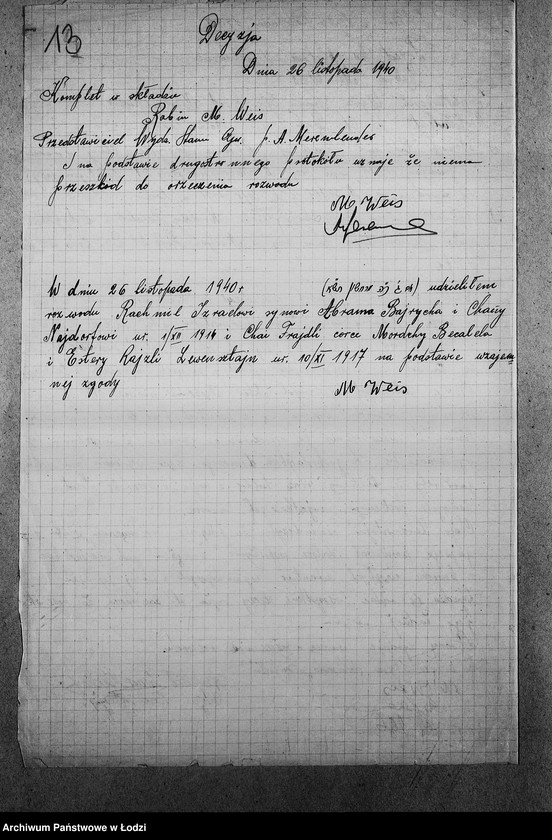 13
Decyzja
Dnia 26 listopada 1940
Komplet w składzie
Rabin M. Weis
Przedstawiciel Wydz. Stanu Cyw. p. A. Merenlender
I na podstawie drugostronnego protokółu uznaje że niema
przeszkód do orzeczenia rozwodu
M. Weis
W dniu 26 listopada 1940 r udzieliłem
rozwodu Rachmil Izraelowi synowi Abrama Bajrycha i Chaỹy
Najdorfowi ur. 1/XII 1914 i Chai Frajdli córce Mordchy Becalela
i Estery Rajzli Lewensztajn ur. 10/XI 1917 na podstawie wzajem
nej zgody
M Weis
Archiwum Państwowe w Łodzi